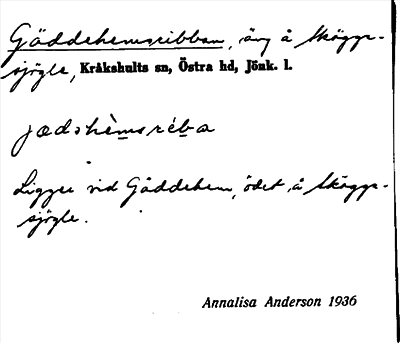 Gäddehemsribban, äng å Skäggs-
sjögle, Kråkshults sn, Östra hd, Jönk. l.
jædshèmsréba
Ligger vid Gäddehem, ödet, å Skäggs-
sjögle.
Annalisa Anderson 1936